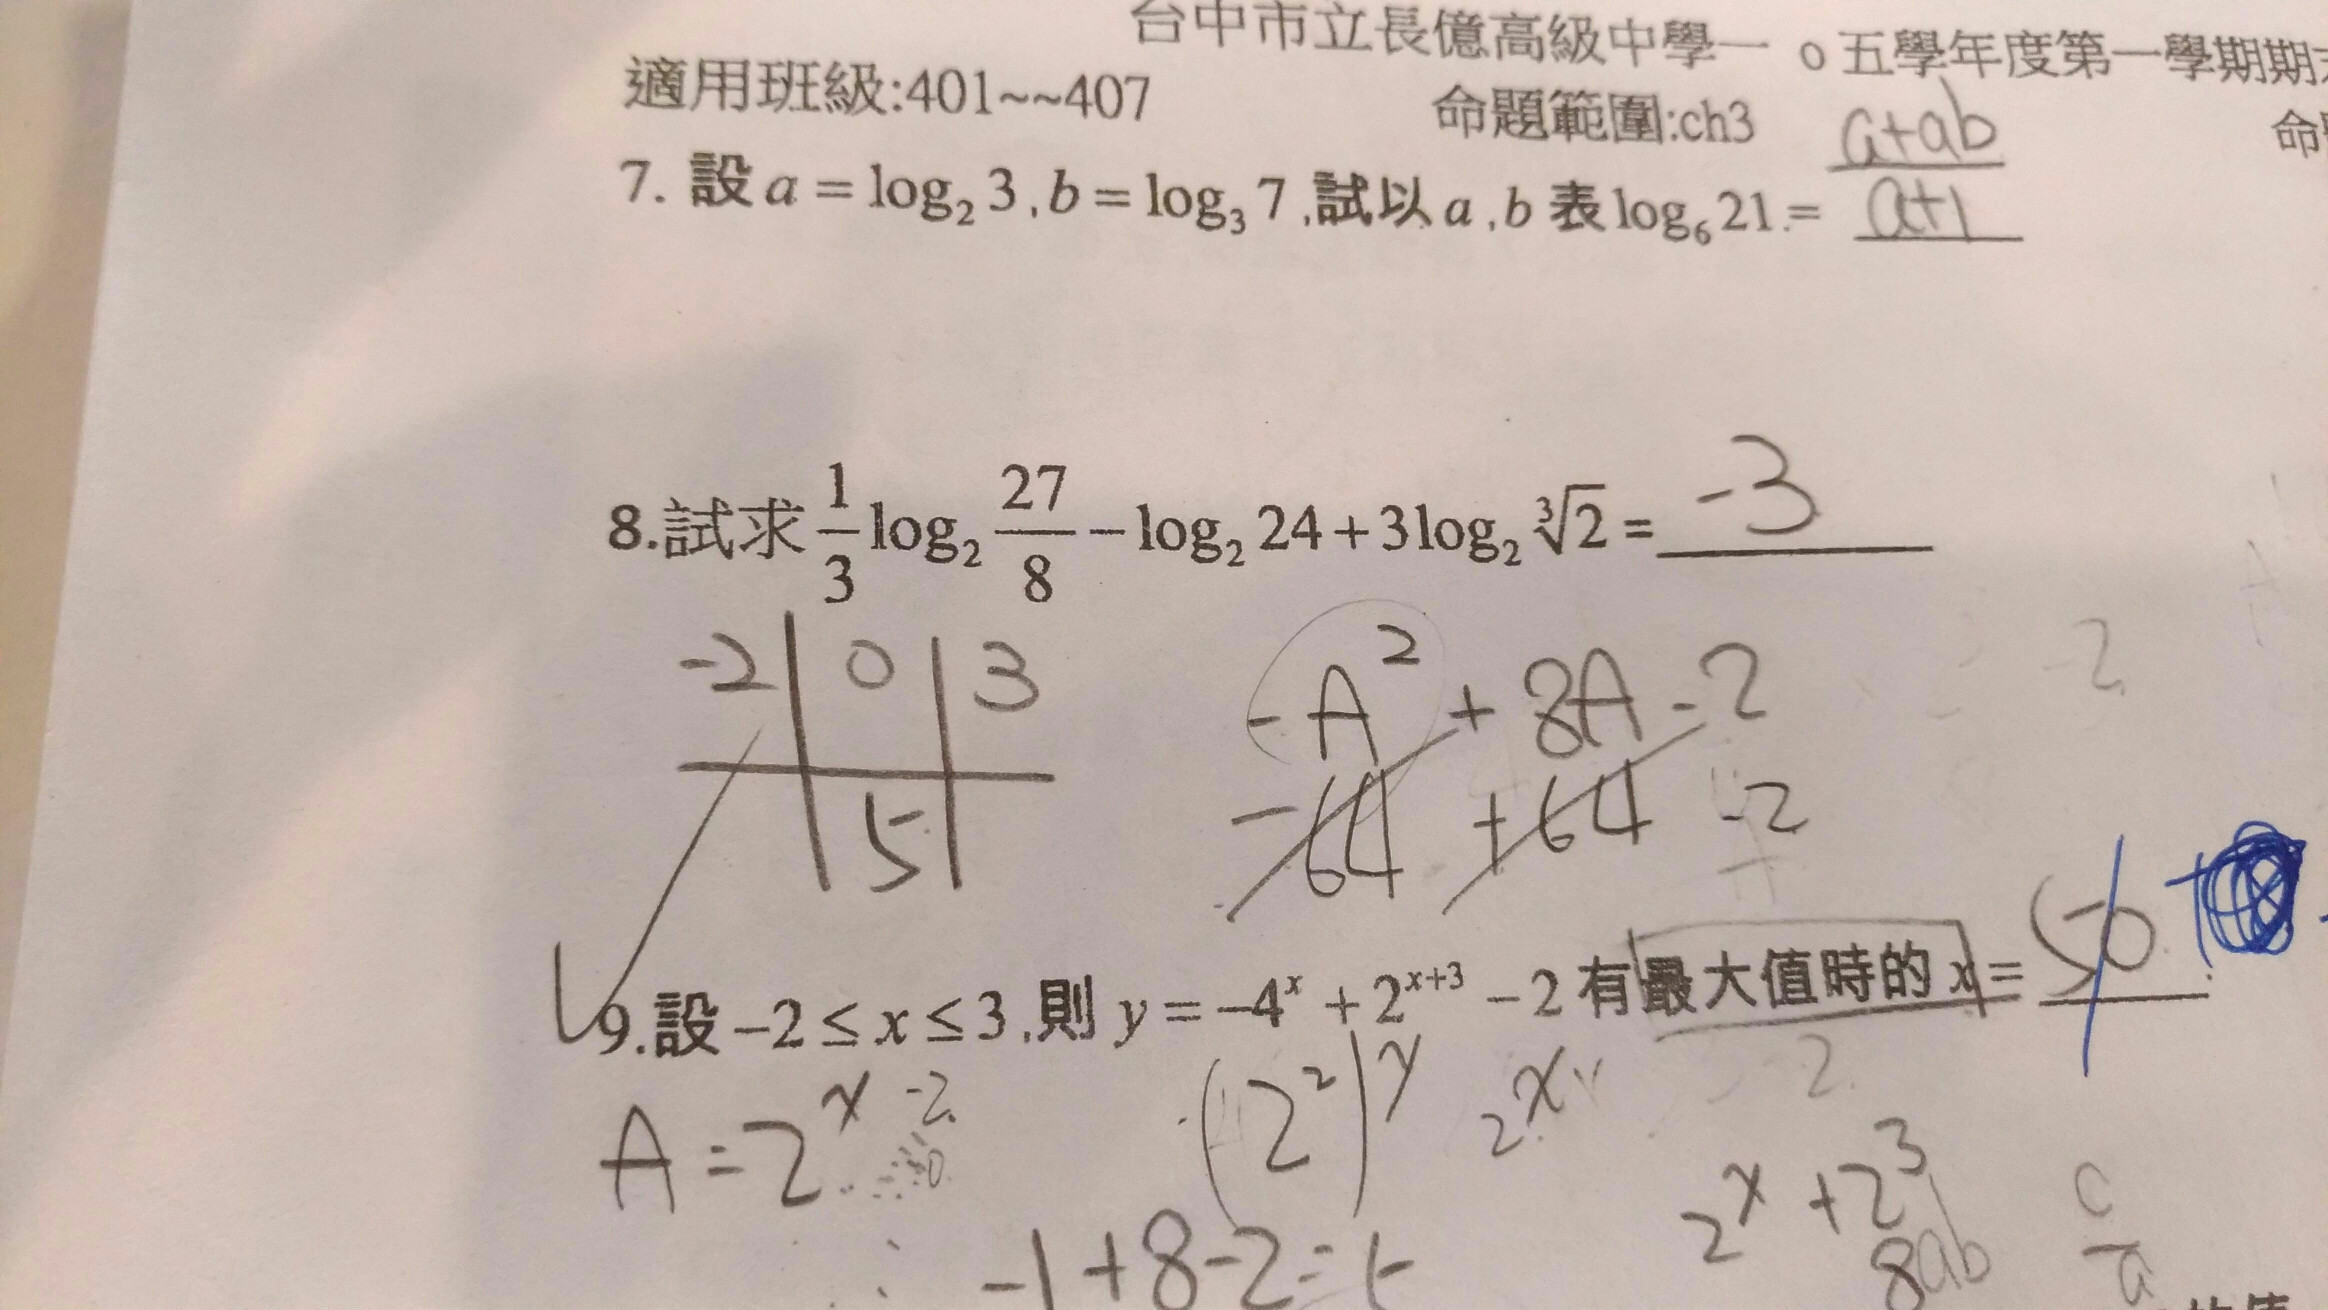 台中市立長億高級中學一○五學年度第一學期期末
適用班級:401~~407 命題範圍:ch3 命
7. 設 a = log₂ 3 , b = log₃ 7 ,試以 a , b 表 log₆ 21 = (a+ab)/(a+1)
8.試求 1/3 log₂ 27/8 − log₂ 24 + 3 log₂ ∛2 = -3
-2 | 0 | 3
5
-A² + 8A - 2
-64 +64 -2
-2
9.設 −2 ≤ x ≤ 3 ,則 y = −4ˣ + 2ˣ⁺³ − 2 有最大值時的 x = 50
A = 2ˣ -2
(2²)ˣ 2ˣ
2
2ˣ + 2³
8
ab
c/a
-1+8-2=